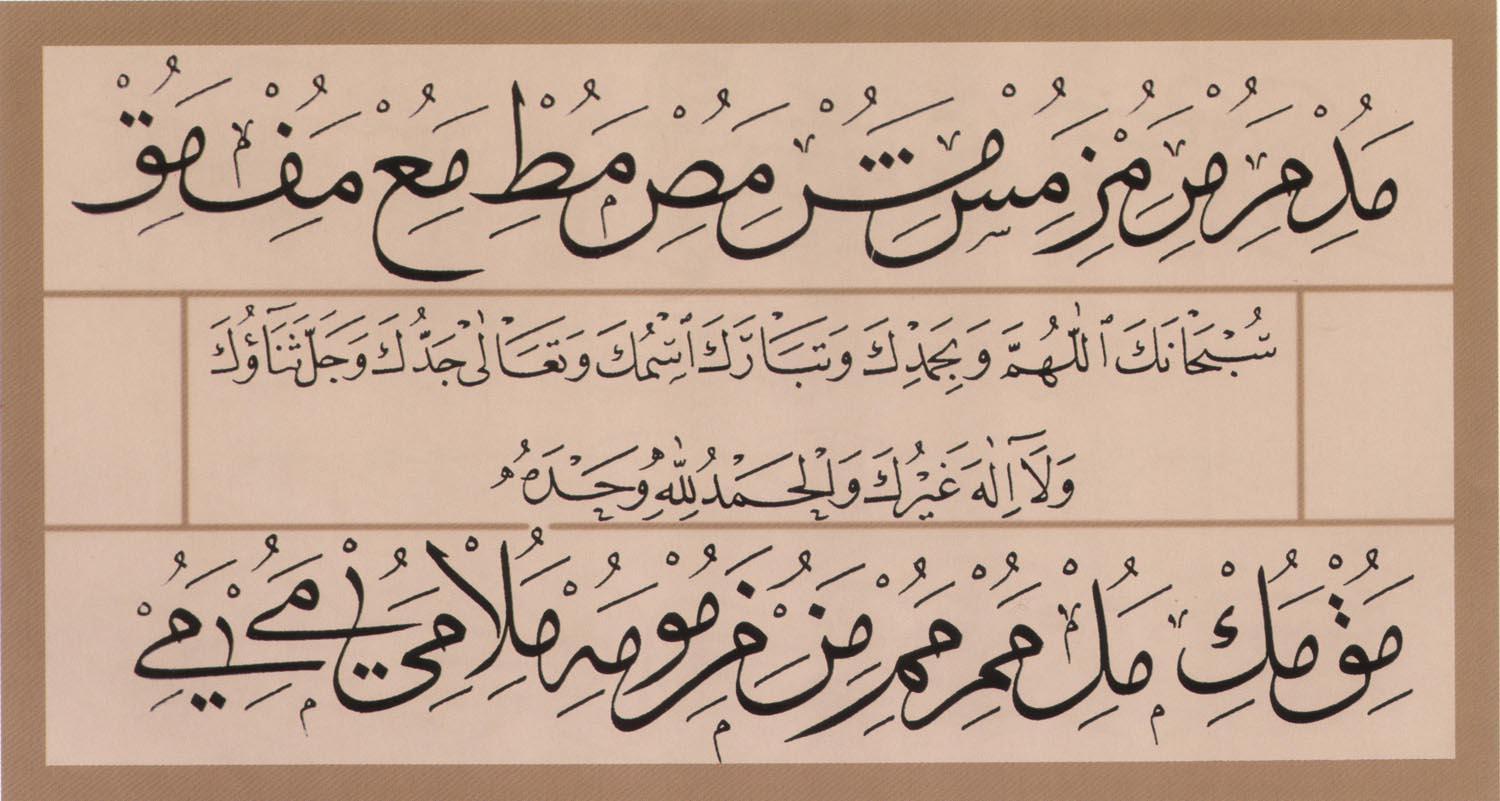 مد مر مر مز مس مش مص مط مع مف مق
سُبْحَانَكَ ٱللّٰهُمَّ وَبِحَمْدِكَ وَتَبَارَكَ ٱسْمُكَ وَتَعَالٰى جَدُّكَ وَجَلَّ ثَنَآؤُكَ
وَلَآ اِلٰهَ غَيْرُكَ وَالْحَمْدُ لِلّٰهِ وَحْدَهُ
مق مك مل مم مم من من مو مه ملا مي مي مي